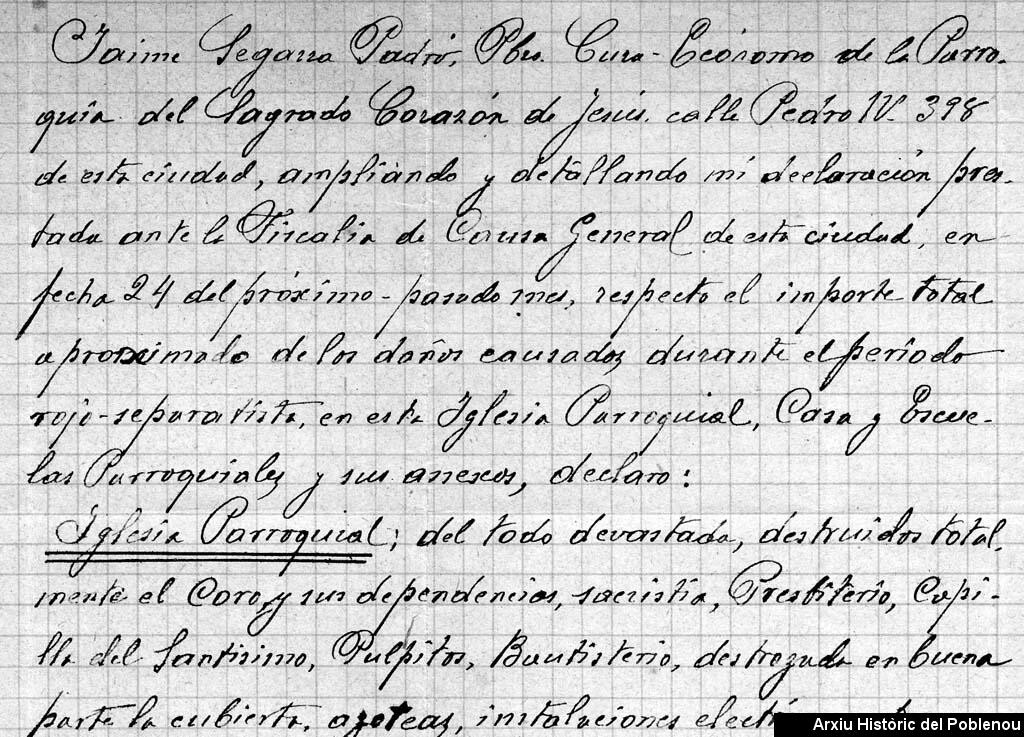 Jaime Segarra Padró, Pbro. Cura-Ecónomo de la Parro-
quia del Sagrado Corazón de Jesús. calle Pedro IV. 398
de esta ciudad, ampliando y detallando mi declaración pres-
tada ante la Fiscalia de Causa General de esta ciudad, en
fecha 24 del próximo-pasado mes, respecto el importe total
aproximado de los daños causados, durante el período
rojo-separatista, en esta Iglesia Parroquial, Casa y Escue-
las Parroquiales y sus anexos, declaro:
Iglesia Parroquial; del todo devastada, destruidos total-
mente el Coro, y sus dependencias, sacristia, Presbiterio, Capi-
lla del Santisimo, Pulpitos, Bautisterio, destrozada en buena
parte la cubierta, azoteas, instalaciones
Arxiu Històric del Poblenou